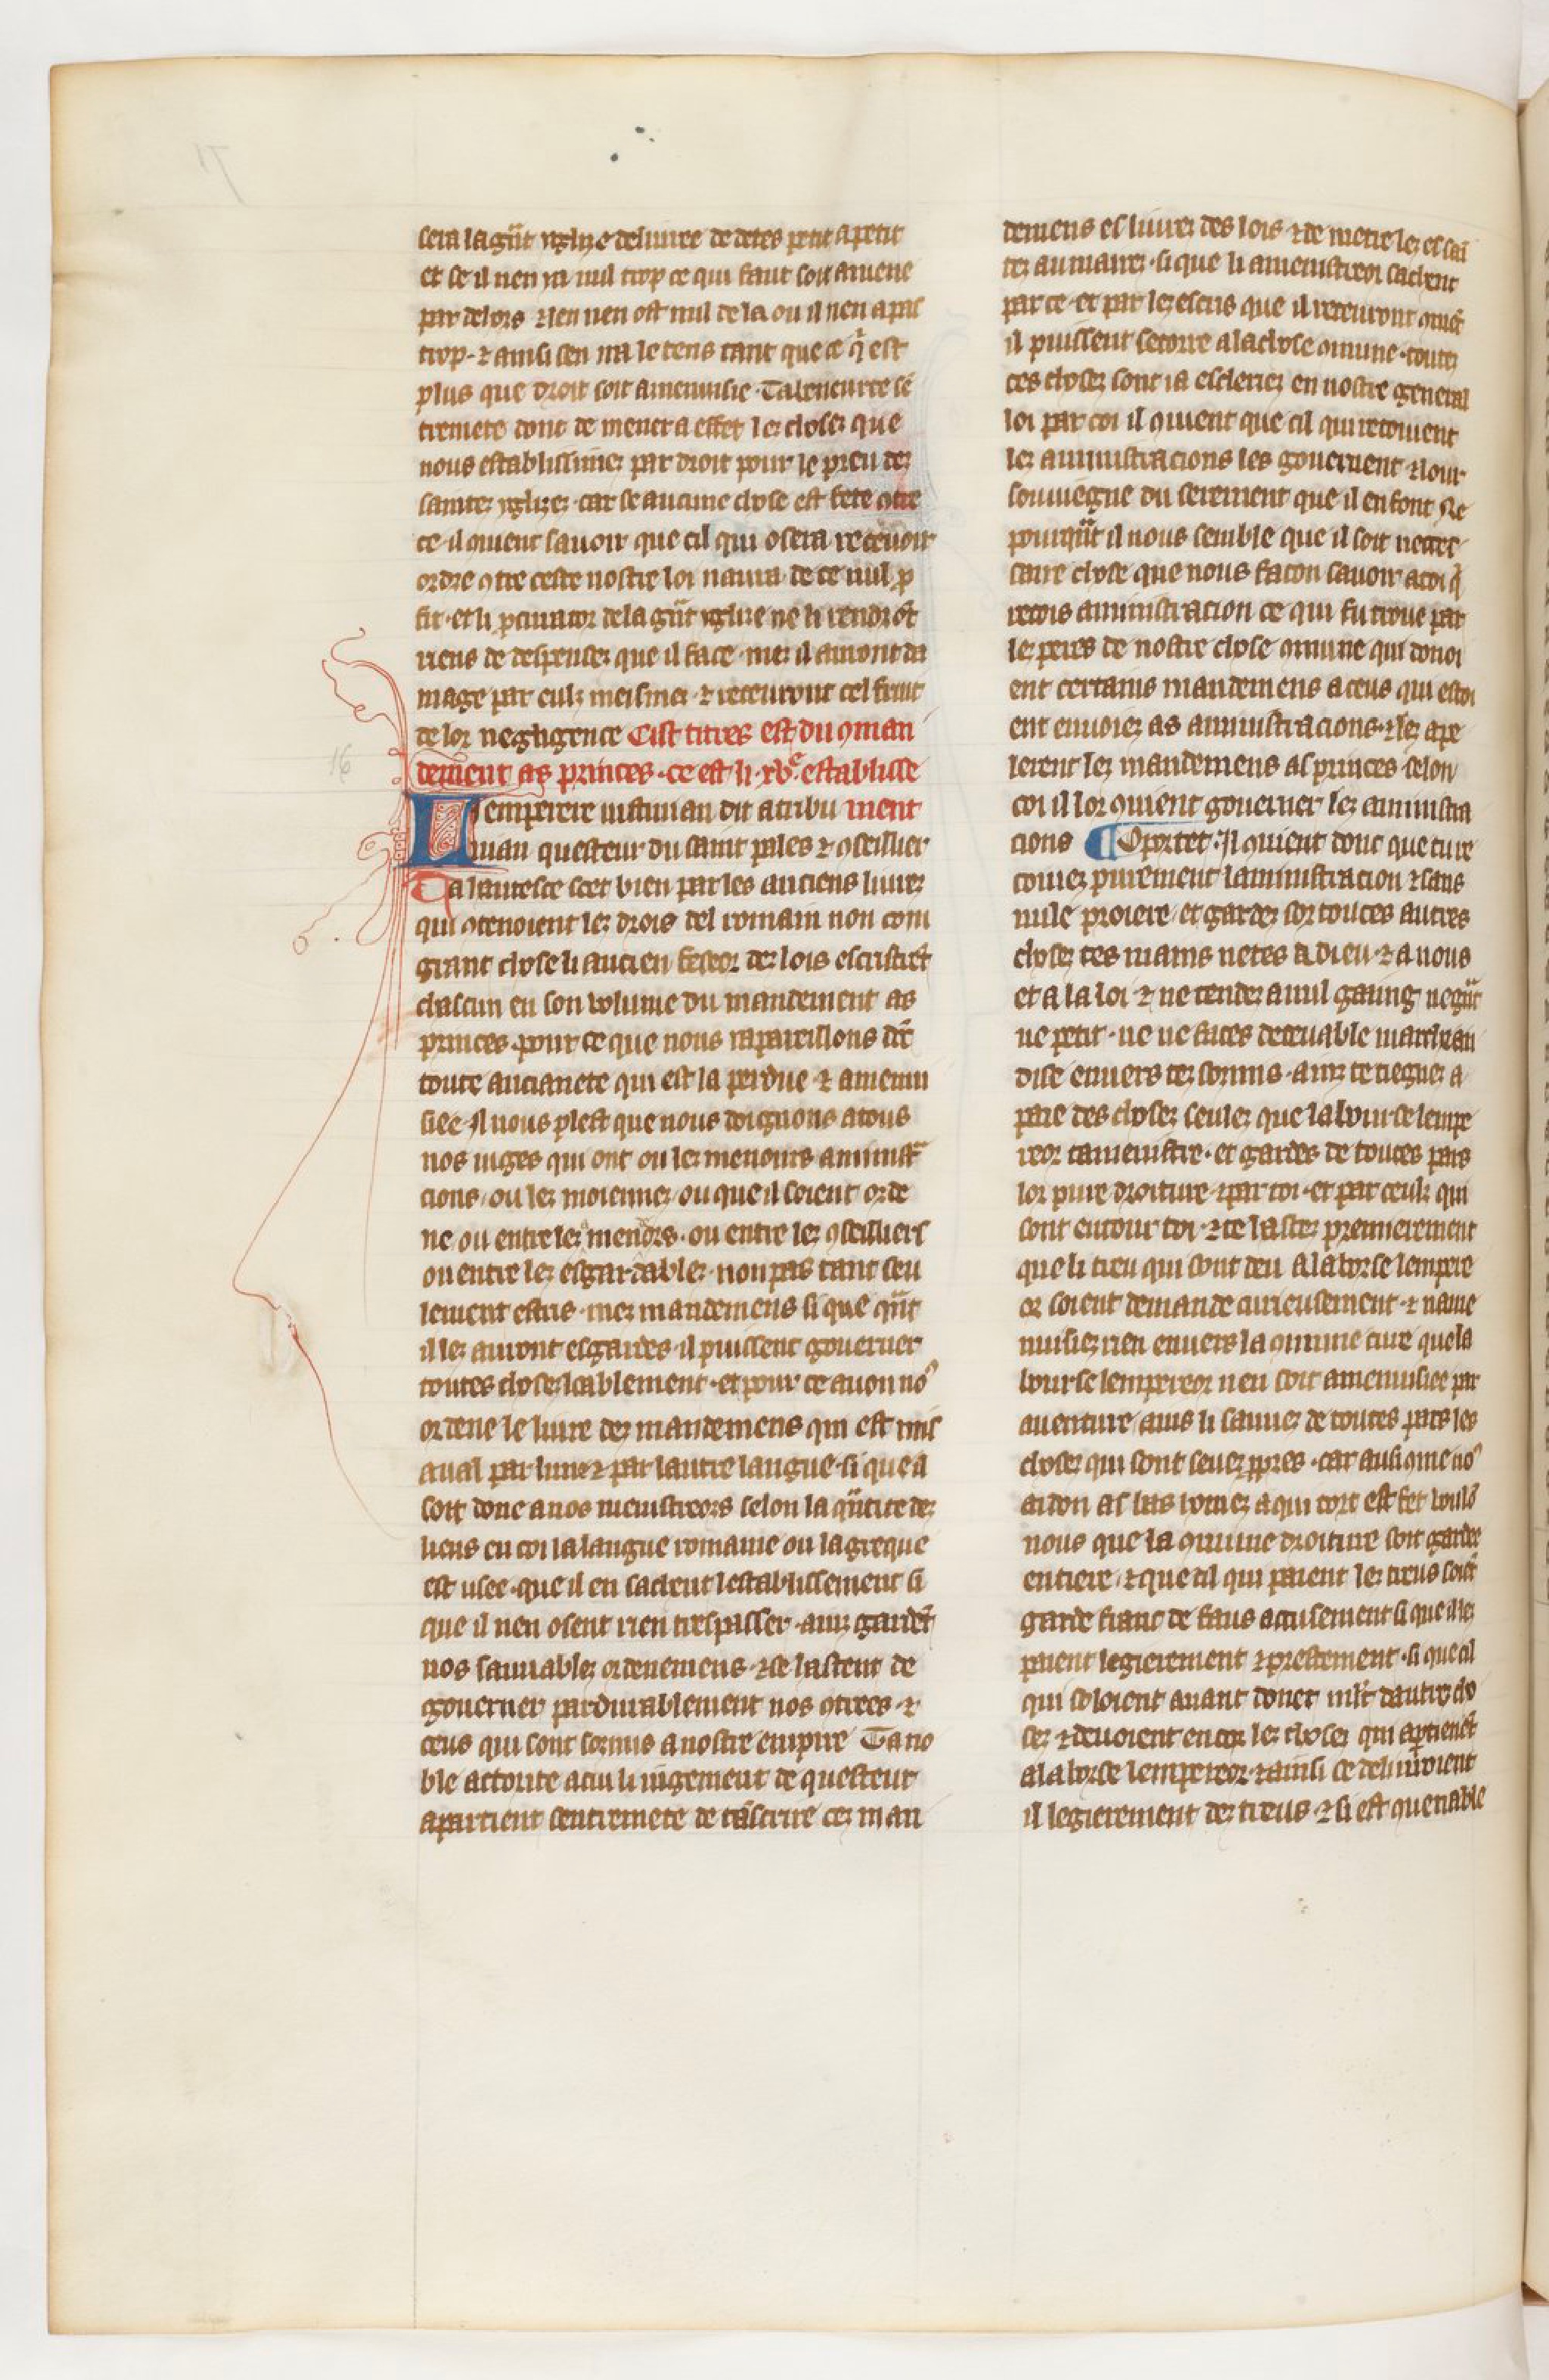 sera la gñt yglyse deliuree de detes petit a petit
et se il nen ia nul trop ce qui faut soit amene
par dehors ⁊ len nen ost nul de la ou il nen a pas
trop ⁊ ainsi sen ira le tens tant que ce q̉ est
plus que droit soit amenuisie Ta hencurce sẽ
tremete donc de mener a effet lez chosez que
nous establissmez par droit pour le preu dez
saintez yglisez car se aucune chose est fete ꝯtre
ce il ꝯuient sauoir que cil qui osera receuoir
ordre ꝯtre ceste nostre loi naura de ce nul ꝓ
fit et li ꝓcurator de la gñt yglise ne li rendrõt
riens de despensez que il face mez il auront da
mage par eulz meismez ⁊ receuront cel fruit
de lor negligence Cist titres est du ꝯman
dement as princes ce est li xvͤ establisse
Lemperere iustinian dit a tribu ment
nian questeur du saint pales ⁊ ꝯseillier
Ta hautesce scet bien par les anciens liurez
qui ꝯtenoient lez drois del romain non com
grant chose li ancien feseor dez lois escristrẽt
chascun en son volume du mandement as
princes pour ce que nous rapareillons dĩt
toute ancianete qui est ia perdue ⁊ amenui
siee Il nous plest que nous doignons a tous
nos iuges qui ont ou lez menours aministᷓ
cions ou lez moiennez ou que il soient orde
ne ou entre lez menors ou entre lez ꝯseilliers
ou entre lez esgardablez non pas tant seu
lement escris mez mandemens si que qñt
il lez auront esgardes il puissent gouerner
toutes chosez loablement et pour ce auon noꝰ
ordene le liure dez mandemens qui est mis
aual par lune ⁊ par lautre langue si que il
soit done a nos menistreors selon la qñtite dez
liens en coi la langue romaine ou la greque
est usee que il en sachent lestablissement si
que il nen osent rien trespasser ainz gardẽt
nos sauuablez ordenemens ⁊ se hastent de
gouerner pardurablement nos ꝯtrees ⁊
ceus qui sont sormis a nostre empire Ta no
ble actorite a cui li iugement de questeur
apartient sentremete de tᷓscrire cez man
demens es liures des lois ⁊ de metre lez es sai
tez aumairez si que li amenistreor sachent
par ce et par lez escris que il receuront ꝯmẽt
il puissent secorre a la chose ꝯmune toutez
ces chosez sont ia escleriez en nostre general
loi par coi il ꝯuient que cil qui recoiuent
lez aministracions les gouernent ⁊ lour
souuiegne du serement que il en font Ne
pourqñt il nous semble que il soit neces
saire chose que nous facon sauoir a toi q̉
recois aministration ce qui fu troue par
lez peres de nostre chose ꝯmune qui donoi
ent certains mandemens a ceus qui estoi
ent enuoiez as aministracions ⁊ lez ape
lerent lez mandemens as princes selon
coi il lor ꝯuient gouerner lez aministra
cions ¶ Oportet Il ꝯuient donc que tu re
coiuez purement laministracion ⁊ sans
nule proiere et gardez sor toutes autres
chosez tes mains netes a dieu ⁊ a nous
et a la loi ⁊ ne tendez a nul gaaing ne gñt
ne petit ne ne faces deceuable marchean
dise enuers tez sormis ainz te tiegnez a
paie des chosez seulez que la bourse lempe
reor tamenistre et gardes de toutes pars
lor pure droiture ⁊ par toi et par ceulz qui
sont entour toi ⁊ te hastez premierement
que li treu qui sont deu a la borse lempere
or soient demande curieusement ⁊ name
nuisiez rien enuers la ꝯmune cure que la
bourse lempereor nen soit amenuisiee par
auenture ains li sauuez de toutes pars les
chosez qui sont seuez ꝓpres car ausi ꝯme noꝰ
aidon as las homez a qui tort est fet voulõ
nous que la ꝯmune droiture soit gardee
entiere ⁊ que cil qui paient lez treus soiẽt
garde franc de faus acusement si que il lez
paient legierement ⁊ prestement si que cil
qui soloient auant doner m̃lt dautre cho
ses ⁊ deuoient encor lez chosez qui apartienẽt
a la borse lempereor ⁊ ainsi se deliuroient
il legierement dez treus ⁊ si est ꝯuenable